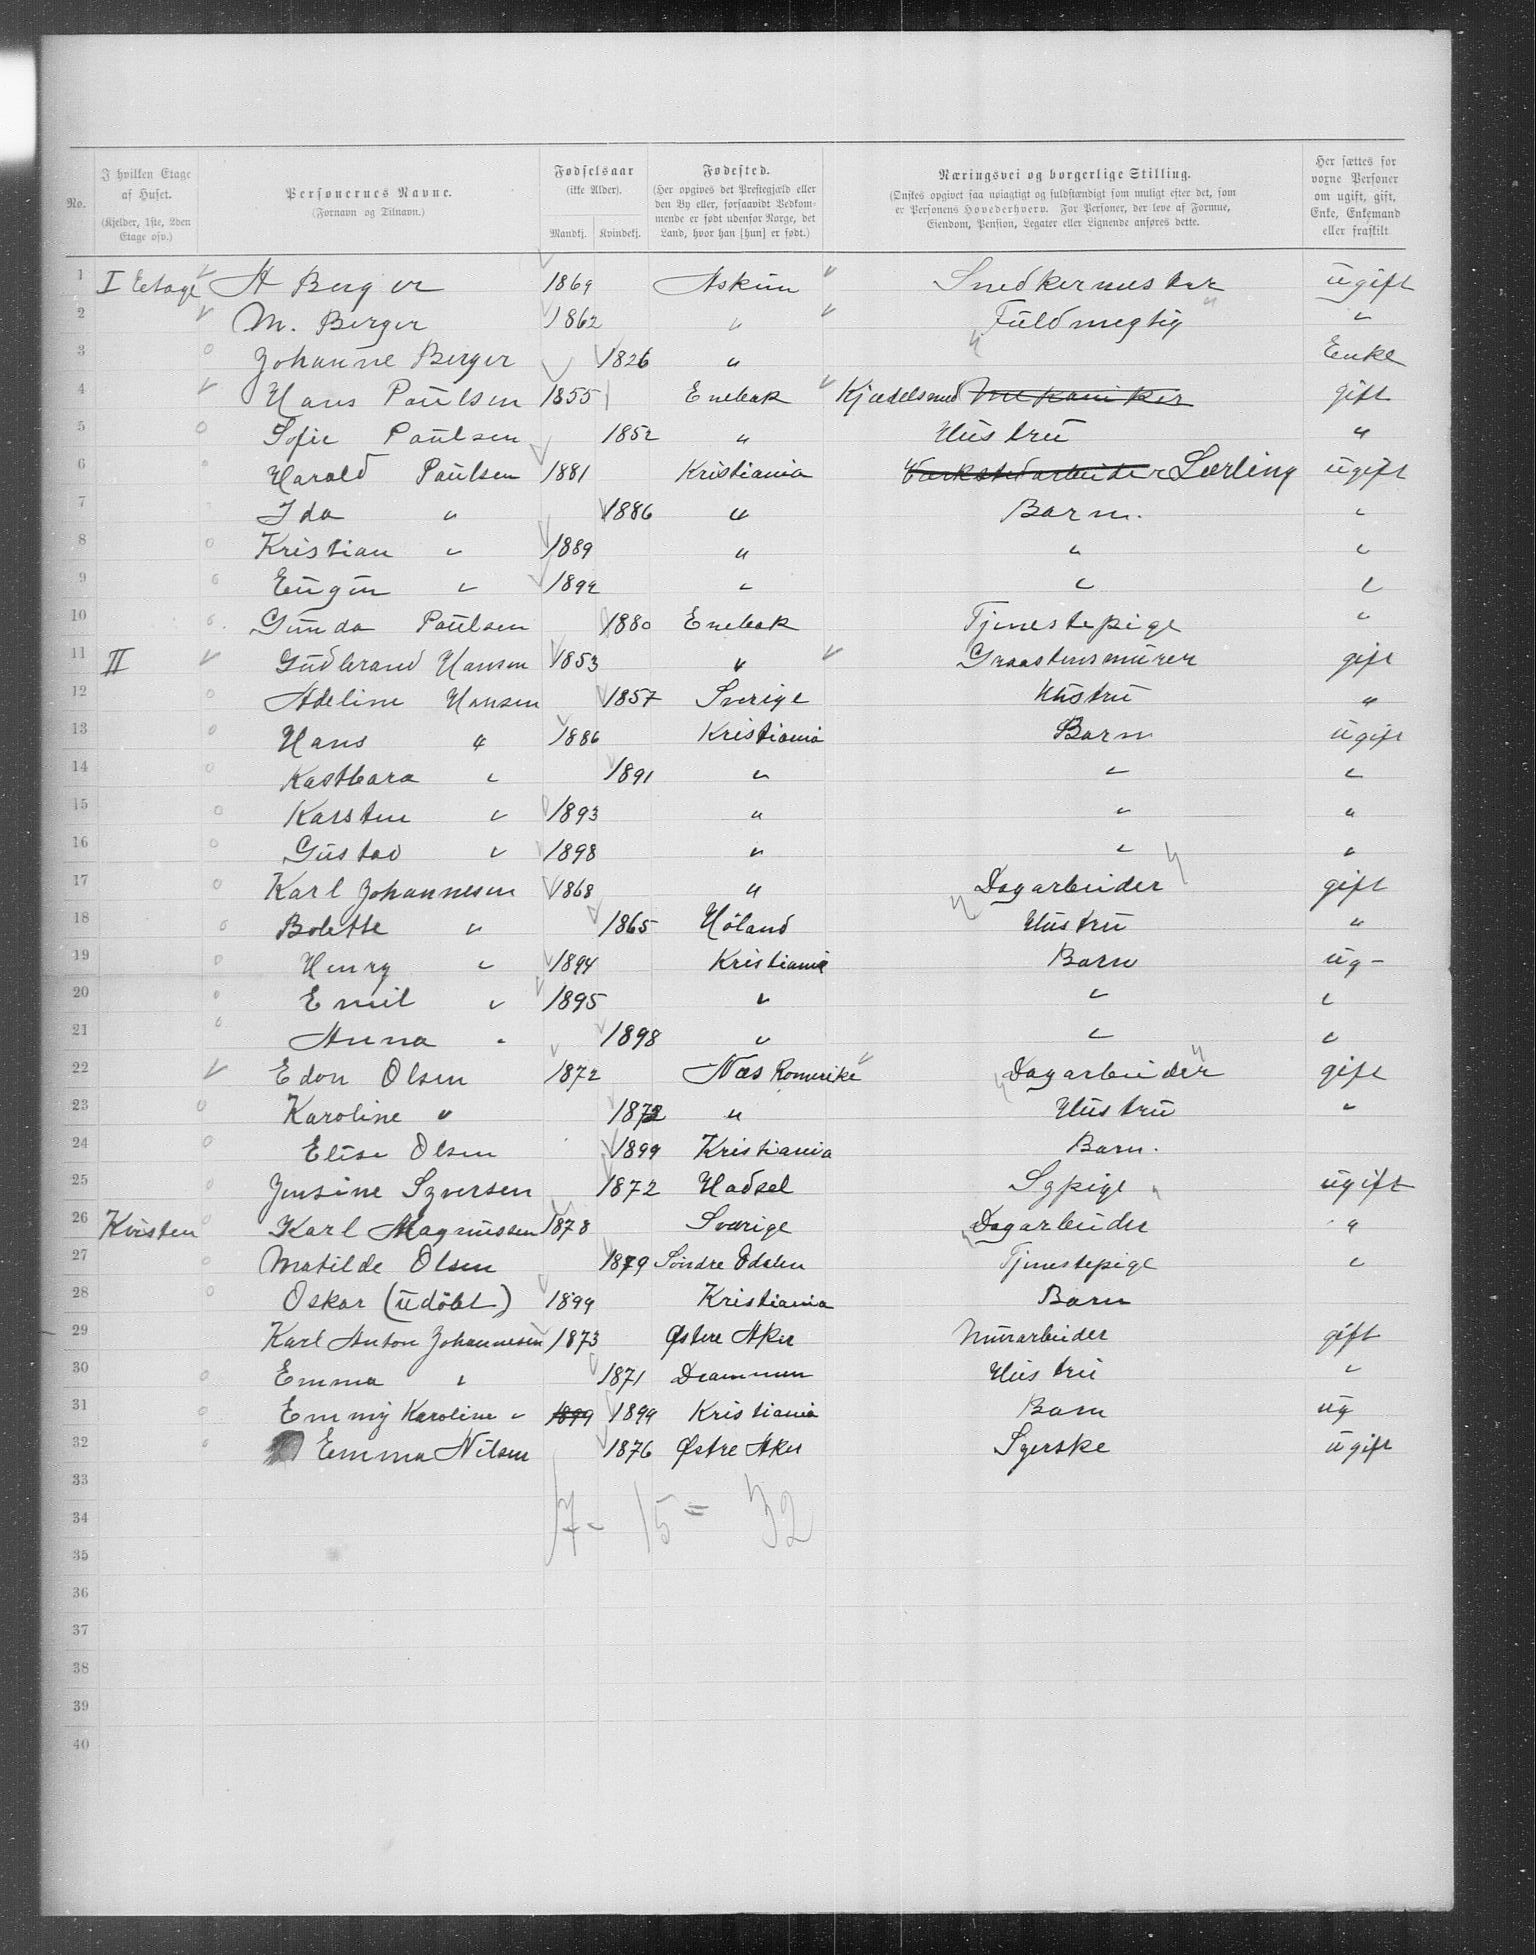 No. I hvilken Etage af Huset. (Kjelder, 1ste, 2den Etage osv.) Personernes Navne. (Fornavn og Tilnavn.) Fødselsaar (ikke Alder). Mandkj. Kvindekj. Fødested. (Her opgives det Prestegjæld eller den By eller, forsaavidt Vedkommende er født udenfor Norge, det Land, hvor han [hun] er født.) Næringsvei og borgerlige Stilling. (Ønskes opgivet saa nøiagtigt og fuldstændigt som muligt efter det, som er Personens Hovederhverv. For Personer, der leve af Formue, Eiendom, Pension, Legater eller Lignende anføres dette. Her sættes for voxne Personer om ugift, gift, Enke, Enkemand eller fraskilt
1 I Etage A Berger 1869 Askim Snedkermester ugift
2 M. Berger 1862 " Fuldmegtig "
3 Johanne Berger 1826 " Enke
4 Hans Paulsen 1855 Enebak Kjedelsmed Mekaniker gift
5 Sofie Paulsen 1852 " Hustru "
6 Harald Paulsen 1881 Kristiania Værkstedarbeider Lærling ugift
7 Ida " 1886 " Barn. "
8 Kristian " 1889 " " "
9 Eugen " 1892 " " "
10 Gunda Paulsen 1880 Enebak Tjenestepige "
11 II Gudbrand Hansen 1853 " Graastensmurer gift
12 Adeline Hansen 1857 Sverige Hustru "
13 Hans " 1886 Kristiania Barn ugift
14 Kastbara " 1891 " " "
15 Karsten " 1893 " " "
16 Gustav " 1898 " " "
17 Karl Johannesen 1868 " Dagarbeider gift
18 Bolette " 1865 Høland Hustru "
19 Henry " 1894 Kristiania Barn ug-
20 Emil " 1895 " " "
21 Anna " 1898 " " "
22 Edon Olsen 1872 Næs Romerike Dagarbeider gift
23 Karoline " 1872 " Hustru "
24 Elise Olsen 1899 Kristiania Barn.
25 Jensine Syversen 1872 Hadsel Sypige ugift
26 Kvisten Karl Magnussen 1878 Sverige Dagarbeider "
27 Matilde Olsen 1879 Søndre Odalen Tjenestepige "
28 Oskar (udøbt) 1899 Kristiania Barn
29 Karl Anton Johannesen 1873 Østre Aker Murarbeider gift
30 Emma " 1871 Drammen Hustru "
31 Emmy Karoline " 1899 1899 Kristiania Barn ug
32 Emma Nilsen 1876 Østre Aker Syerske ugift
33
34 17 - 15 = 32
35
36
37
38
39
40